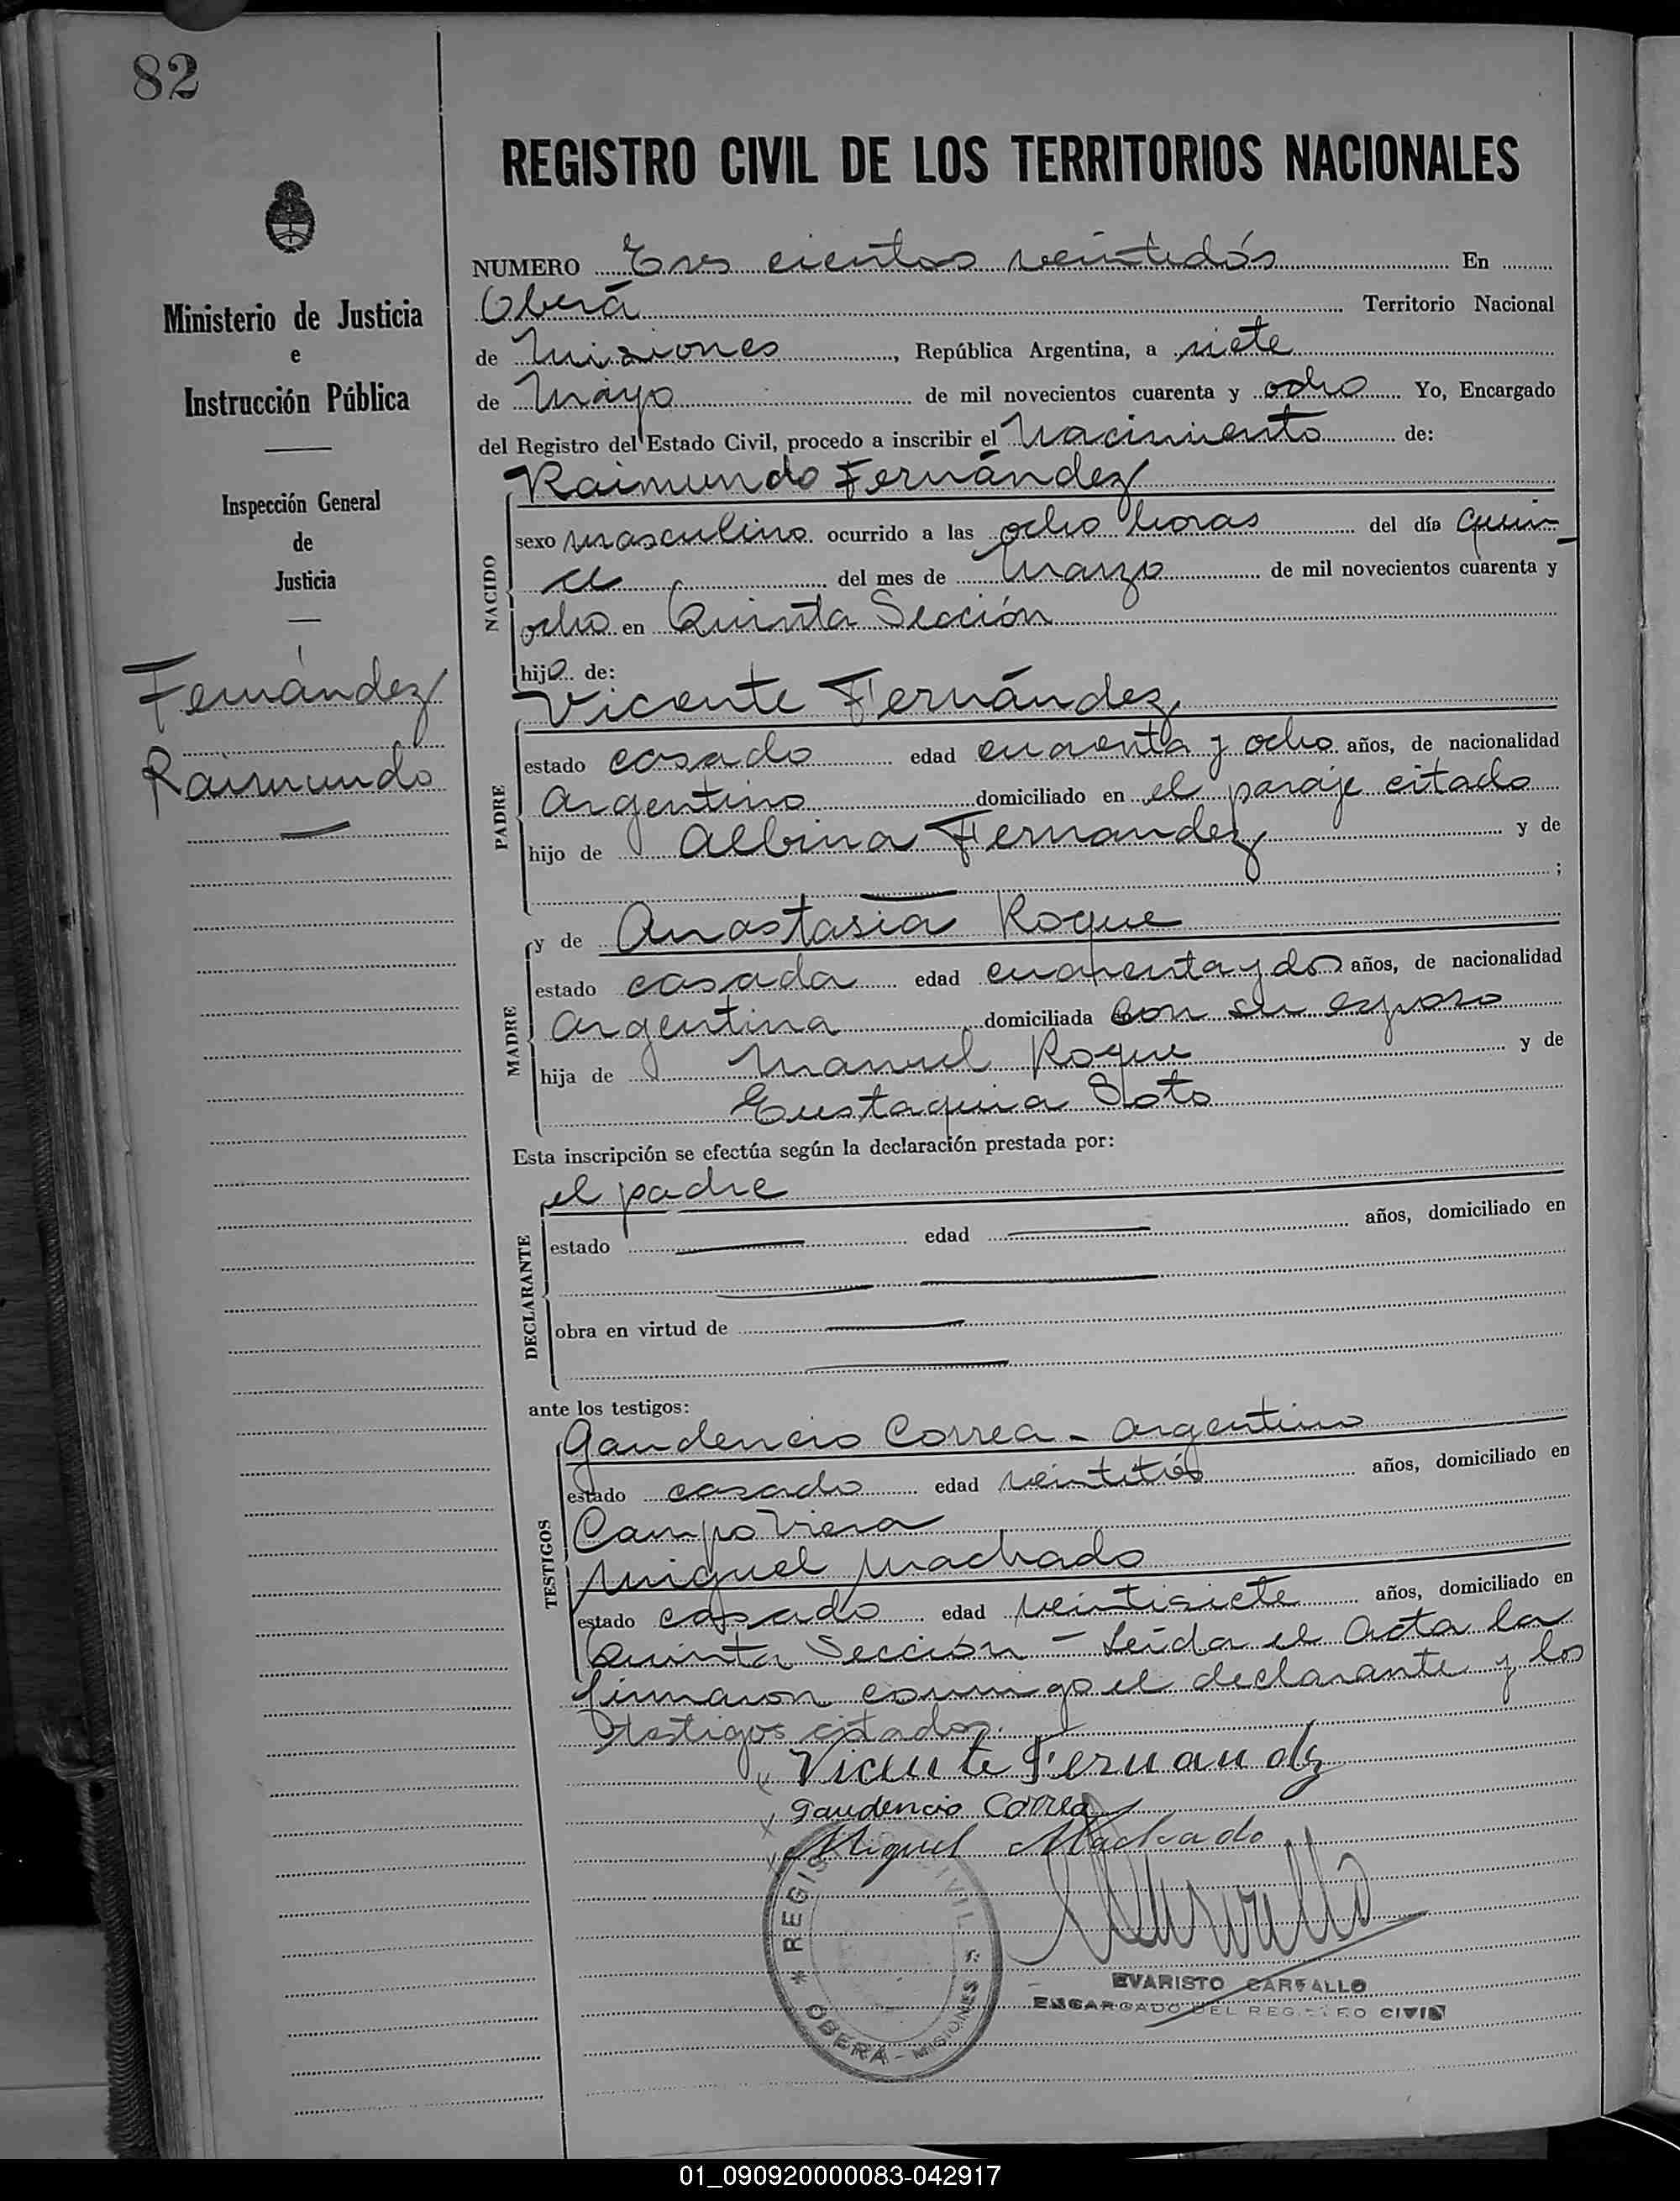 82
REGISTRO CIVIL DE LOS TERRITORIOS NACIONALES
Ministerio de Justicia
e
Instrucción Pública
Inspección General
de
Justicia
Fernández
Raimundo
NUMERO Tres cientos veintedós En
Oberá Territorio Nacional
de Misiones, República Argentina, a siete
de Mayo de mil novecientos cuarenta y ocho Yo, Encargado
del Registro del Estado Civil, procedo a inscribir el Nacimiento de:
NACIDO
Raimundo Fernández
sexo masculino ocurrido a las ocho horas del día quin-
ce del mes de Marzo de mil novecientos cuarenta y
ocho en Quinta Sección
hijo de:
PADRE
Vicente Fernández
estado casado edad cuarenta y ocho años, de nacionalidad
Argentino domiciliado en el paraje citado
hijo de Albina Fernandez y de
;
MADRE
y de Anastasia Roque
estado casada edad cuarenta y dos años, de nacionalidad
Argentina domiciliada con su esposo
hija de Manuel Roque y de
Eustaquia Soto
Esta inscripción se efectúa según la declaración prestada por:
DECLARANTE
el padre
estado edad años, domiciliado en
obra en virtud de
ante los testigos:
TESTIGOS
Gaudencio Correa - Argentino
estado casado edad veintitrés años, domiciliado en
Campo Viera
Miguel Machado
estado casado edad veintisiete años, domiciliado en
Quinta Sección - Leída el Acta la
firmaron conmigo el declarante y los
testigos citados.
Vicente Fernandez
Gaudencio Correa
Miguel Machado
* REGIS CIVIL * OBERÁ - MISIONES
EVARISTO CARVALLO
ENCARGADO DEL REGISTRO CIVIL
01_090920000083-042917